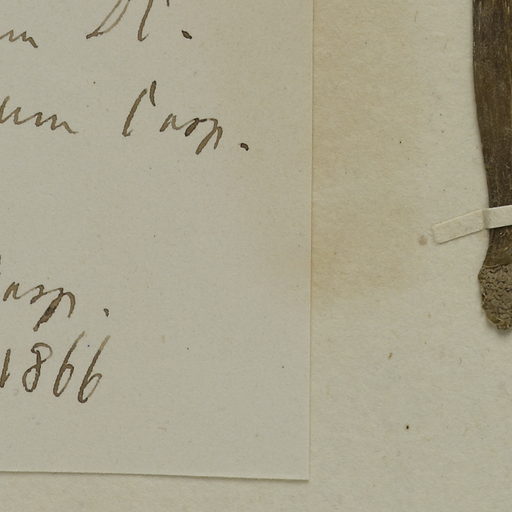 um DC.
um Casp.
Casp.
1866